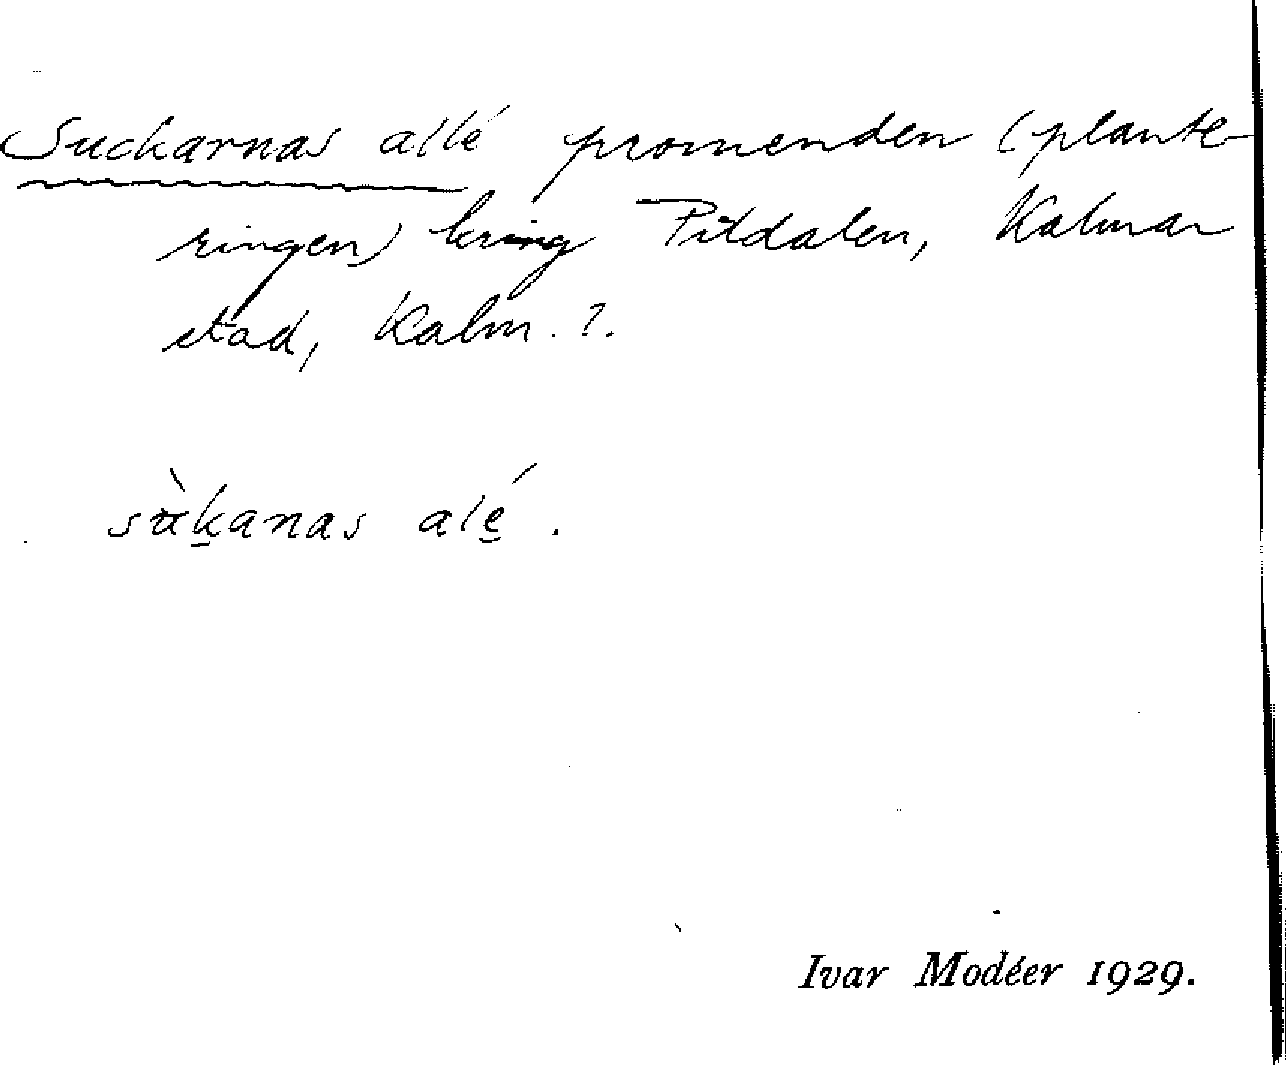 Suckarnas allé promenden (plante-
ringen) kring Pildalen, Kalmar
stad, Kalm. ?.
sùkanas alé.
Ivar Modéer 1929.